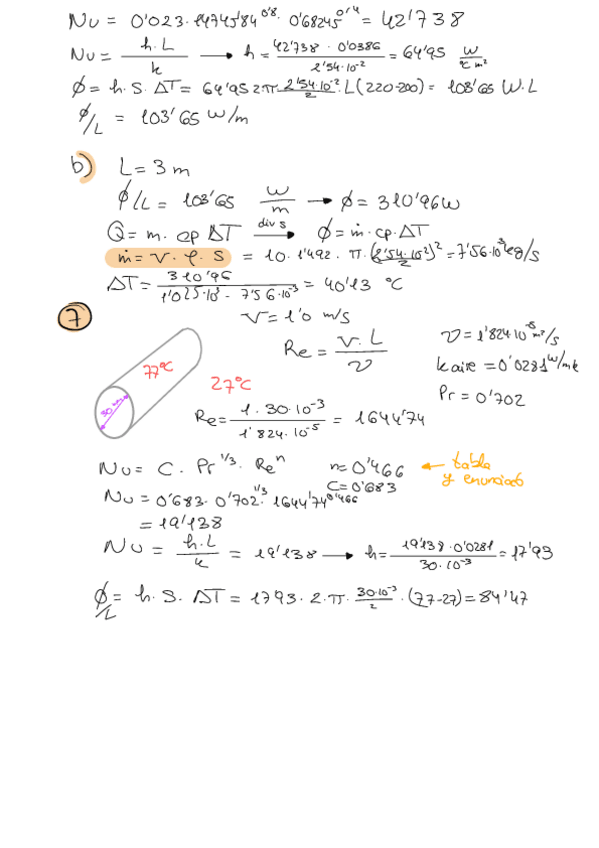 Nu = 0'023 · 14745'84^0'8 · 0'68245^0'4 = 42'738
Nu = h·L / k → h = 42'738 · 0'0386 / 2'54·10^-2 = 64'95 W / ºC m²
ϕ = h. S. ΔT = 64'95 2π 2'54·10^-2 / 2 · L (220-200) = 103'65 W.L
ϕ/L = 103'65 W/m
b) L = 3 m
ϕ/L = 103'65 W/m → ϕ = 310'96 W
Q = m. cp ΔT div s → ϕ = ṁ·cp·ΔT
ṁ = v. ρ. S = 10· 1'492 · π· (2'54·10^-2 / 2)² = 7'56·10^-3 kg/s
ΔT = 310'96 / 1'025·10³ · 7'56·10^-3 = 40'13 ºC
7 V = 1'0 m/s
Re = V. L / ν
ν = 1'824·10^-5 m²/s
k aire = 0'0281 W/mk
Pr = 0'702
77ºC
30 mm
27ºC
Re = 1 · 30·10^-3 / 1'824·10^-5 = 1644'74
Nu = C · Pr^1/3 · Re^n n = 0'466 ← tabla
C = 0'683 y enunciado
Nu = 0'683 · 0'702^1/3 · 1644'74^0'466
= 19'138
Nu = h·L / k = 19'138 → h = 19'138 · 0'0281 / 30·10^-3 = 17'93
ϕ/L = h. S. ΔT = 1793 · 2·π· 30·10^-3 / 2 · (77-27) = 84'47